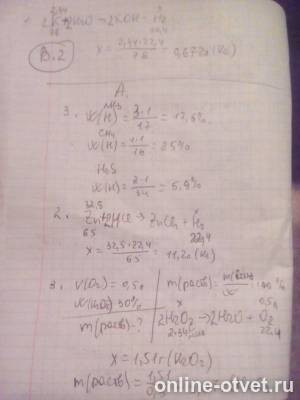 2,44
2K+2H2O → 2KOH + H2
78
x = 2,44·22,4 / 78 = 0,672л (H2)
В.2
A.
3. NH3
w(H) = 3·1/17 = 17,6%
CH4
w(H) = 4·1/16 = 25%
H2S
w(H) = 2·1/34 = 5,9%
2. 32,5
Zn+2HCl → ZnCl2 + H2
65 22,4
x = 32,5·22,4 / 65 = 11,2л (H2)
3. V(O2) = 0,5л
w(H2O2) 30%
m(раств) - ?
m(раств) =
x 0,5л
2H2O2 → 2H2O + O2
22,4
x = 1,51г (H2O2)
m(раств) = 1,51
online-otvet.ru